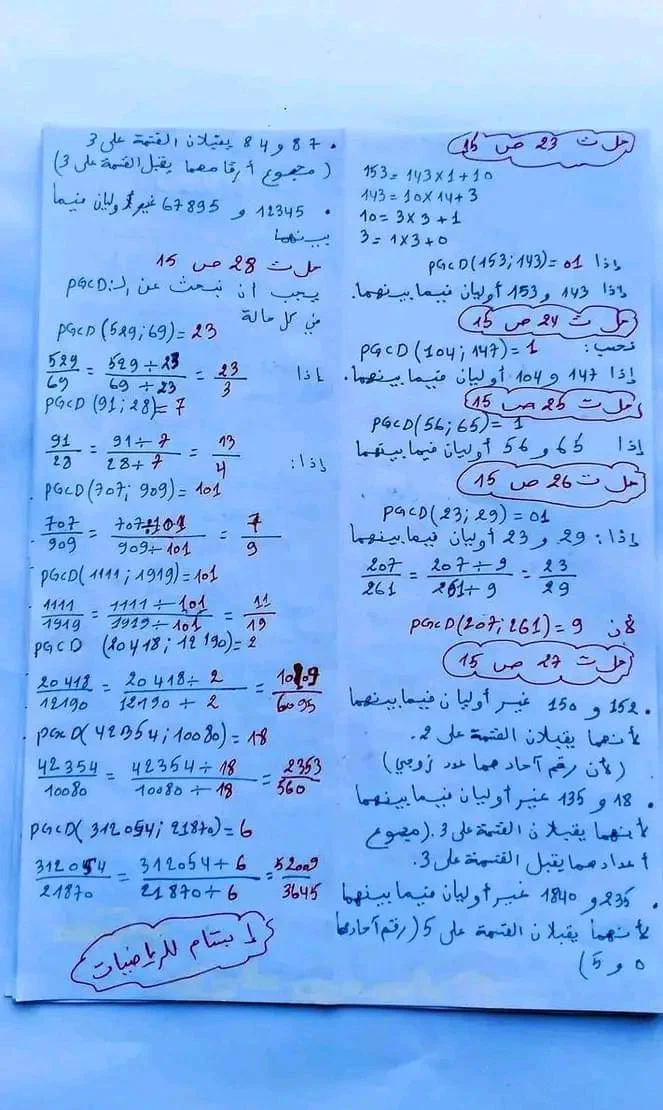 حل ت 23 ص 15
153 = 143 × 1 + 10
143 = 10 × 14 + 3
10 = 3 × 3 + 1
3 = 1 × 3 + 0
إذا PGCD(153; 143) = 01
إذا 143 و 153 أوليان فيما بينهما.
حل ت 24 ص 15
نحسب: PGCD(104; 147) = 1
إذا 147 و 104 أوليان فيما بينهما.
حل ت 25 ص 15
PGCD(56; 65) = 1
إذا 65 و 56 أوليان فيما بينهما
حل ت 26 ص 15
PGCD(23; 29) = 01
إذا: 29 و 23 أوليان فيما بينهما
207/261 = 207 ÷ 9/261 ÷ 9 = 23/29
لأن PGCD(207; 261) = 9
حل ت 27 ص 15
• 152 و 150 غير أوليان فيما بينهما
لأنهما يقبلان القسمة على 2.
(لأن رقم آحادهما عدد زوجي)
• 18 و 135 غير أوليان فيما بينهما
لأنهما يقبلان القسمة على 3. (مجموع
أعدادهما يقبل القسمة على 3.
• 235 و 1840 غير أوليان فيما بينهما
لأنهما يقبلان القسمة على 5 (رقم آحادهما
0 و 5)
• 87 و 84 يقبلان القسمة على 3
(مجموع أرقامهما يقبل القسمة على 3)
• 12345 و 67895 غير أوليان فيما
بينهما
حل ت 28 ص 15
يجب أن نبحث عن الـ: PGCD
في كل حالة
PGCD(529; 69) = 23
إذا 529/69 = 529 ÷ 23/69 ÷ 23 = 23/3
PGCD(91; 28) = 7
إذا: 91/28 = 91 ÷ 7/28 ÷ 7 = 13/4
PGCD(707; 909) = 101
707/909 = 707 ÷ 101/909 ÷ 101 = 7/9
PGCD(1111; 1919) = 101
1111/1919 = 1111 ÷ 101/1919 ÷ 101 = 11/19
PGCD (20418; 12190) = 2
20418/12190 = 20418 ÷ 2/12190 ÷ 2 = 10209/6095
PGCD(42354; 10080) = 18
42354/10080 = 42354 ÷ 18/10080 ÷ 18 = 2353/560
PGCD(312054; 21870) = 6
312054/21870 = 312054 ÷ 6/21870 ÷ 6 = 52009/3645
إبتسام للرياضيات